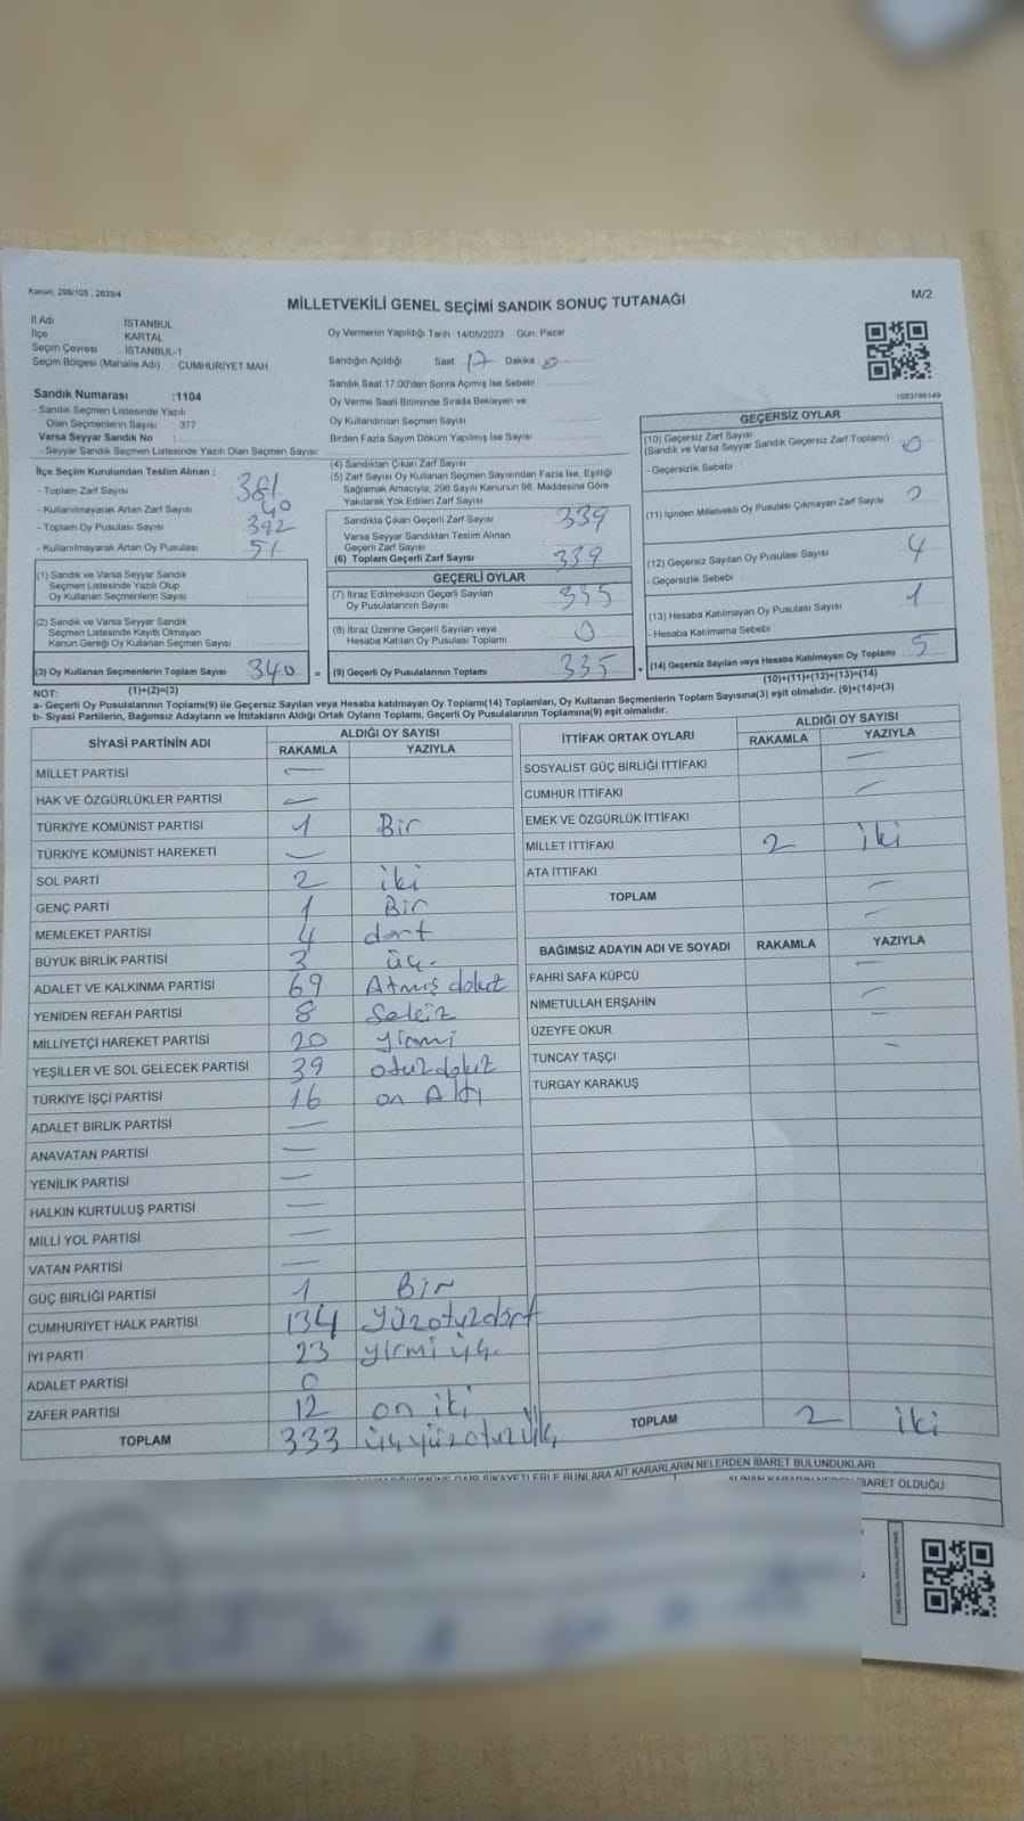 Kanun: 298/105 , 2839/4
MİLLETVEKİLİ GENEL SEÇİMİ SANDIK SONUÇ TUTANAĞI
M/2
İl Adı İSTANBUL
İlçe KARTAL
Seçim Çevresi İSTANBUL-1
Seçim Bölgesi (Mahalle Adı) CUMHURİYET MAH
Oy Vermenin Yapıldığı Tarih 14/05/2023 Gün: Pazar
Sandığın Açıldığı Saat 17 Dakika
Sandık Saat 17.00'den Sonra Açılmış İse Sebebi
Oy Verme Saati Bitiminde Sırada Bekleyen ve
Oy Kullandırılan Seçmen Sayısı
Birden Fazla Sayım Döküm Yapılmış İse Sayısı
Sandık Numarası :1104
- Sandık Seçmen Listesinde Yazılı
Olan Seçmenlerin Sayısı 377
Varsa Seyyar Sandık No
- Seyyar Sandık Seçmen Listesinde Yazılı Olan Seçmen Sayısı
İlçe Seçim Kurulundan Teslim Alınan :
- Toplam Zarf Sayısı 381
- Kullanılmayarak Artan Zarf Sayısı 40
- Toplam Oy Pusulası Sayısı 392
- Kullanılmayarak Artan Oy Pusulası 51
(1) Sandık ve Varsa Seyyar Sandık
Seçmen Listesinde Yazılı Olup
Oy Kullanan Seçmenlerin Sayısı
(2) Sandık ve Varsa Seyyar Sandık
Seçmen Listesinde Kayıtlı Olmayan
Kanun Gereği Oy Kullanan Seçmen Sayısı
(3) Oy Kullanan Seçmenlerin Toplam Sayısı 340 =
(1)+(2)=(3)
(4) Sandıktan Çıkan Zarf Sayısı
(5) Zarf Sayısı Oy Kullanan Seçmen Sayısından Fazla İse, Eşitliği
Sağlamak Amacıyla; 298 Sayılı Kanunun 98. Maddesine Göre
Yakılarak Yok Edilen Zarf Sayısı
Sandıkta Çıkan Geçerli Zarf Sayısı 339
Varsa Seyyar Sandıktan Teslim Alınan
Geçerli Zarf Sayısı
(6) Toplam Geçerli Zarf Sayısı 339
GEÇERLİ OYLAR
(7) İtiraz Edilmeksizin Geçerli Sayılan
Oy Pusulalarının Sayısı 335
(8) İtiraz Üzerine Geçerli Sayılan veya
Hesaba Katılan Oy Pusulası Toplamı 0
(9) Geçerli Oy Pusulalarının Toplamı 335 +
GEÇERSİZ OYLAR
(10) Geçersiz Zarf Sayısı
(Sandık ve Varsa Seyyar Sandık Geçersiz Zarf Toplamı) 0
- Geçersizlik Sebebi
(11) İçinden Milletvekili Oy Pusulası Çıkmayan Zarf Sayısı
(12) Geçersiz Sayılan Oy Pusulası Sayısı 4
- Geçersizlik Sebebi
(13) Hesaba Katılmayan Oy Pusulası Sayısı 1
- Hesaba Katılmama Sebebi
(14) Geçersiz Sayılan veya Hesaba Katılmayan Oy Toplamı 5
(10)+(11)+(12)+(13)=(14)
NOT:
a- Geçerli Oy Pusulalarının Toplamı(9) ile Geçersiz Sayılan veya Hesaba katılmayan Oy Toplamı(14) Toplamları, Oy Kullanan Seçmenlerin Toplam Sayısına(3) eşit olmalıdır. (9)+(14)=(3)
b- Siyasi Partilerin, Bağımsız Adayların ve İttifakların Aldığı Ortak Oyların Toplamı, Geçerli Oy Pusulalarının Toplamına(9) eşit olmalıdır.
SİYASİ PARTİNİN ADI ALDIĞI OY SAYISI
RAKAMLA YAZIYLA
MİLLET PARTİSİ —
HAK VE ÖZGÜRLÜKLER PARTİSİ —
TÜRKİYE KOMÜNİST PARTİSİ 1 Bir
TÜRKİYE KOMÜNİST HAREKETİ —
SOL PARTİ 2 iki
GENÇ PARTİ 1 Bir
MEMLEKET PARTİSİ 4 dört
BÜYÜK BİRLİK PARTİSİ 3 üç.
ADALET VE KALKINMA PARTİSİ 69 Atmış dokuz
YENİDEN REFAH PARTİSİ 8 Sekiz
MİLLİYETÇİ HAREKET PARTİSİ 20 yirmi
YEŞİLLER VE SOL GELECEK PARTİSİ 39 otuzdokuz
TÜRKİYE İŞÇİ PARTİSİ 16 on Altı
ADALET BİRLİK PARTİSİ —
ANAVATAN PARTİSİ —
YENİLİK PARTİSİ —
HALKIN KURTULUŞ PARTİSİ —
MİLLİ YOL PARTİSİ —
VATAN PARTİSİ —
GÜÇ BİRLİĞİ PARTİSİ 1 Bir
CUMHURİYET HALK PARTİSİ 134 yüzotuzdört
İYİ PARTİ 23 yirmi üç.
ADALET PARTİSİ 0
ZAFER PARTİSİ 12 on iki
TOPLAM 333 üçyüzotuzüç
İTTİFAK ORTAK OYLARI ALDIĞI OY SAYISI
RAKAMLA YAZIYLA
SOSYALİST GÜÇ BİRLİĞİ İTTİFAKI —
CUMHUR İTTİFAKI —
EMEK VE ÖZGÜRLÜK İTTİFAKI
MİLLET İTTİFAKI 2 iki
ATA İTTİFAKI —
TOPLAM —
BAĞIMSIZ ADAYIN ADI VE SOYADI RAKAMLA YAZIYLA
FAHRİ SAFA KÜPCÜ —
NİMETULLAH ERŞAHİN —
ÜZEYFE OKUR —
TUNCAY TAŞÇI —
TURGAY KARAKUŞ
TOPLAM 2 iki
ŞİKAYETLERLE BUNLARA AİT KARARLARIN NELERDEN İBARET BULUNDUKLARI
İBARET OLDUĞU